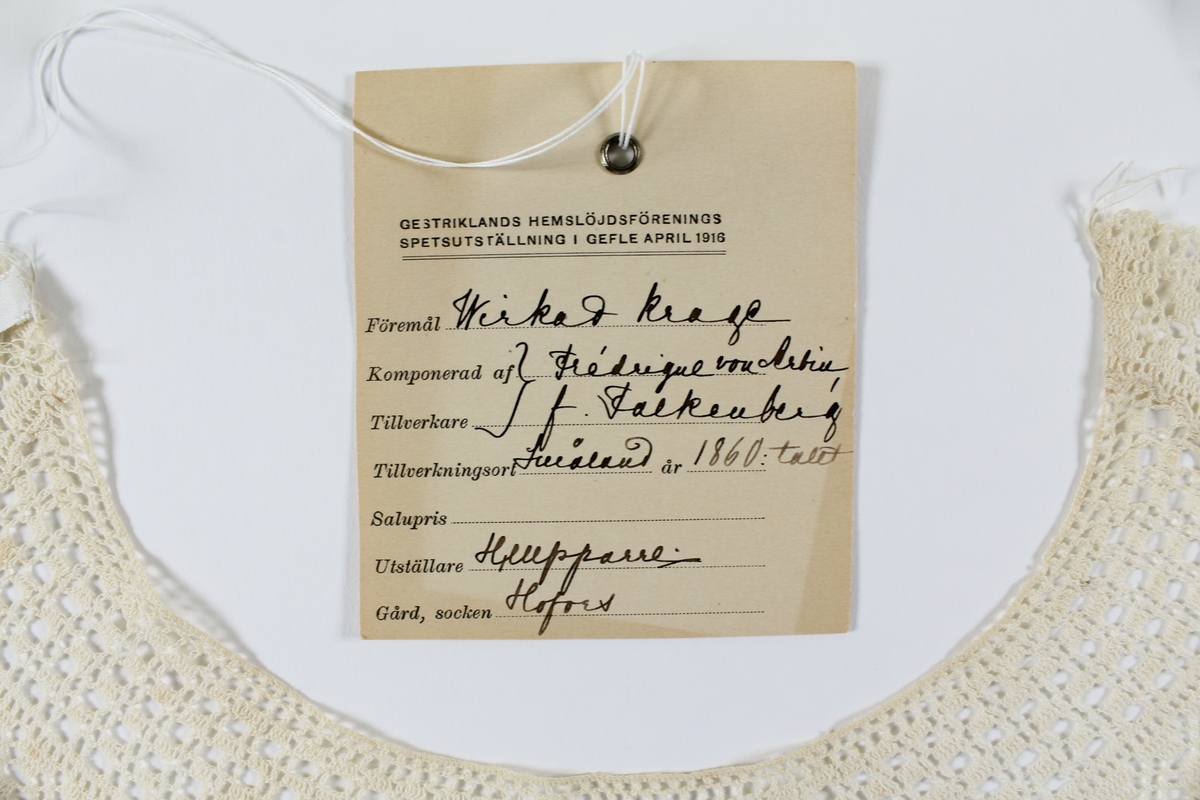 GESTRIKLANDS HEMSLÖJDSFÖRENINGS
SPETSUTSTÄLLNING I GEFLE APRIL 1916
Föremål Wirkad krage
Komponerad af Frédrique von Arbin
Tillverkare f. Falkenberg
Tillverkningsort Småland år 1860: talet
Salupris
Utställare
Gård, socken Hofors